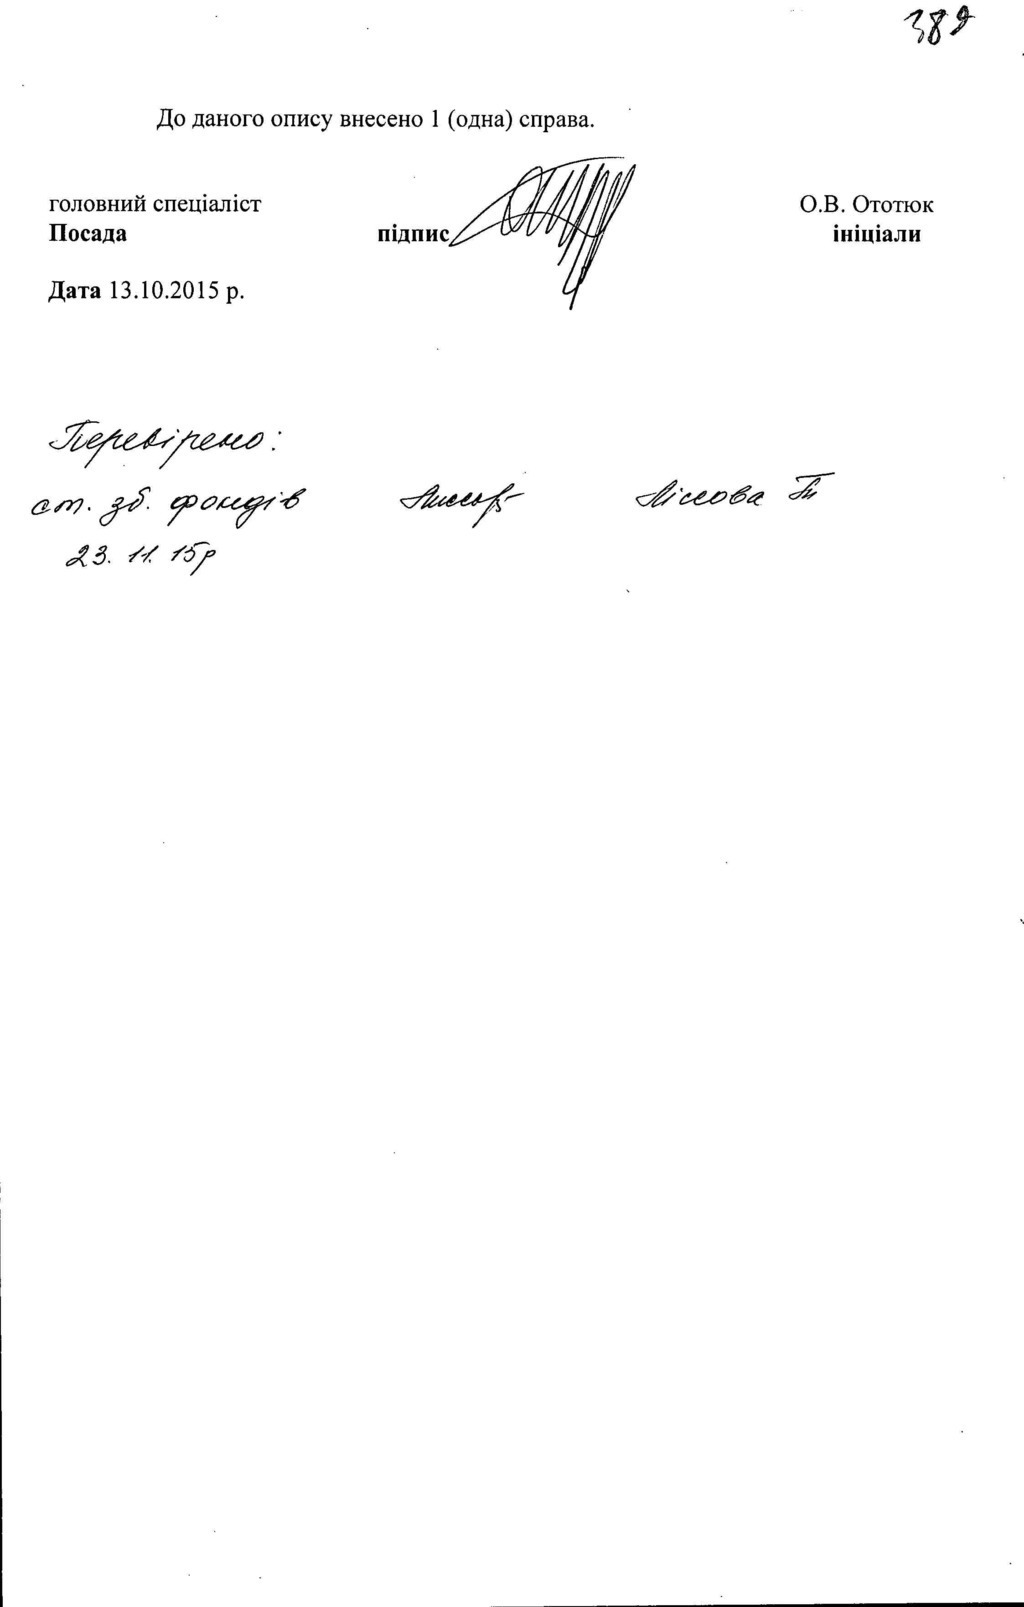 389
До даного опису внесено 1 (одна) справа.
головний спеціаліст О.В. Ототюк
Посада підпис ініціали
Дата 13.10.2015 р.
Перевірено:
ст. зб. фондів
23. 11. 15р